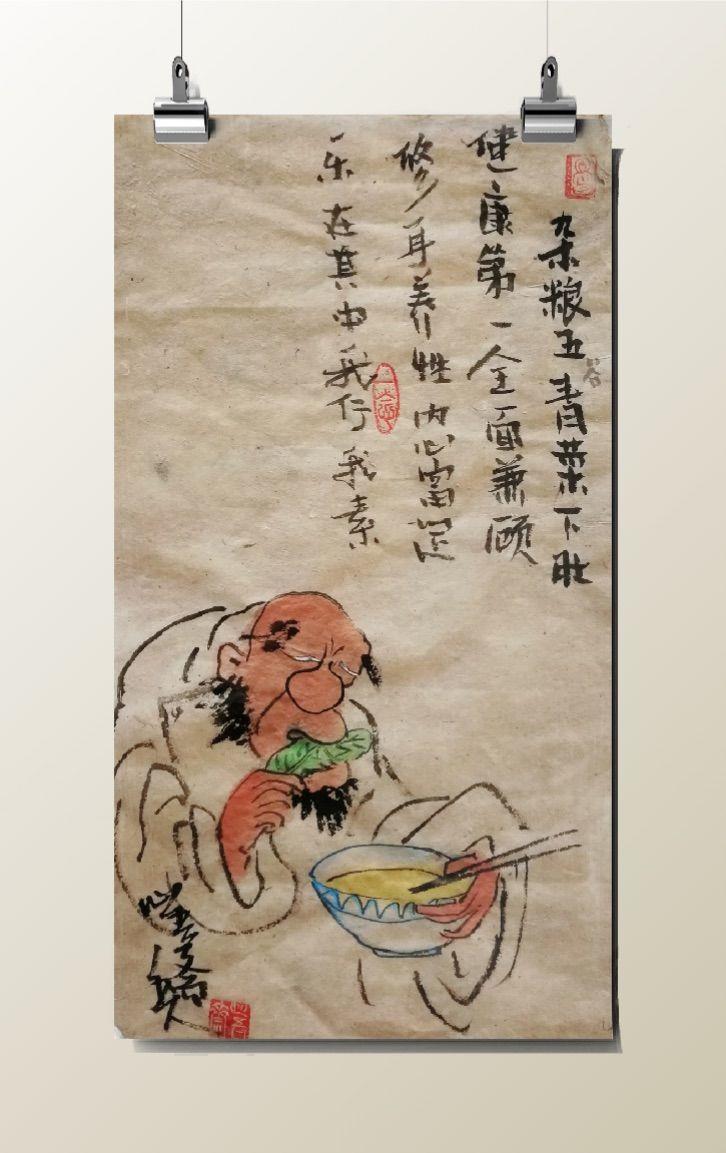 杂粮五谷青菜下肚
健康第一全面兼顾
修身养性内心富足
乐在其中我行我素